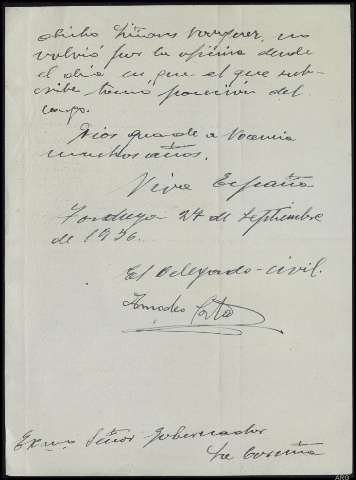 dicho Liñans Vonguer, no
volvió por la oficina desde
el dia en que el que subs-
cribe tomó posesión del
cargo.
Dios guarde a Vocencia
muchos años.
Viva España
24 de Septiembre
de 1936.
El Delegado-civil.
Amadeo
Excmo Señor Gobernador
La Coruña
ARG